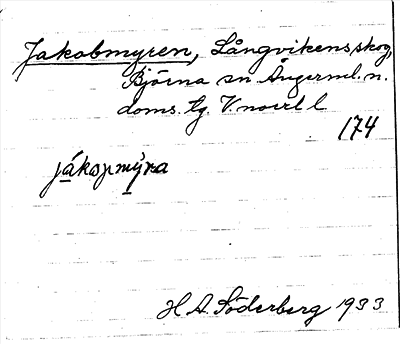 Jakobmyren, Långvikens skog,
Björna sn Ångerml. n.
doms. tg. V.norrl l
174
jákopmýra
H A. Söderberg 1933